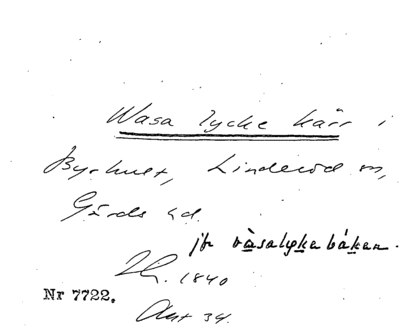 Wasa lycke kärr i
Byrhult, Linderöd sn,
Gärds hd.
jfr vasalyka båkan.
LG. 1840
Akt 34.
Nr 7722.